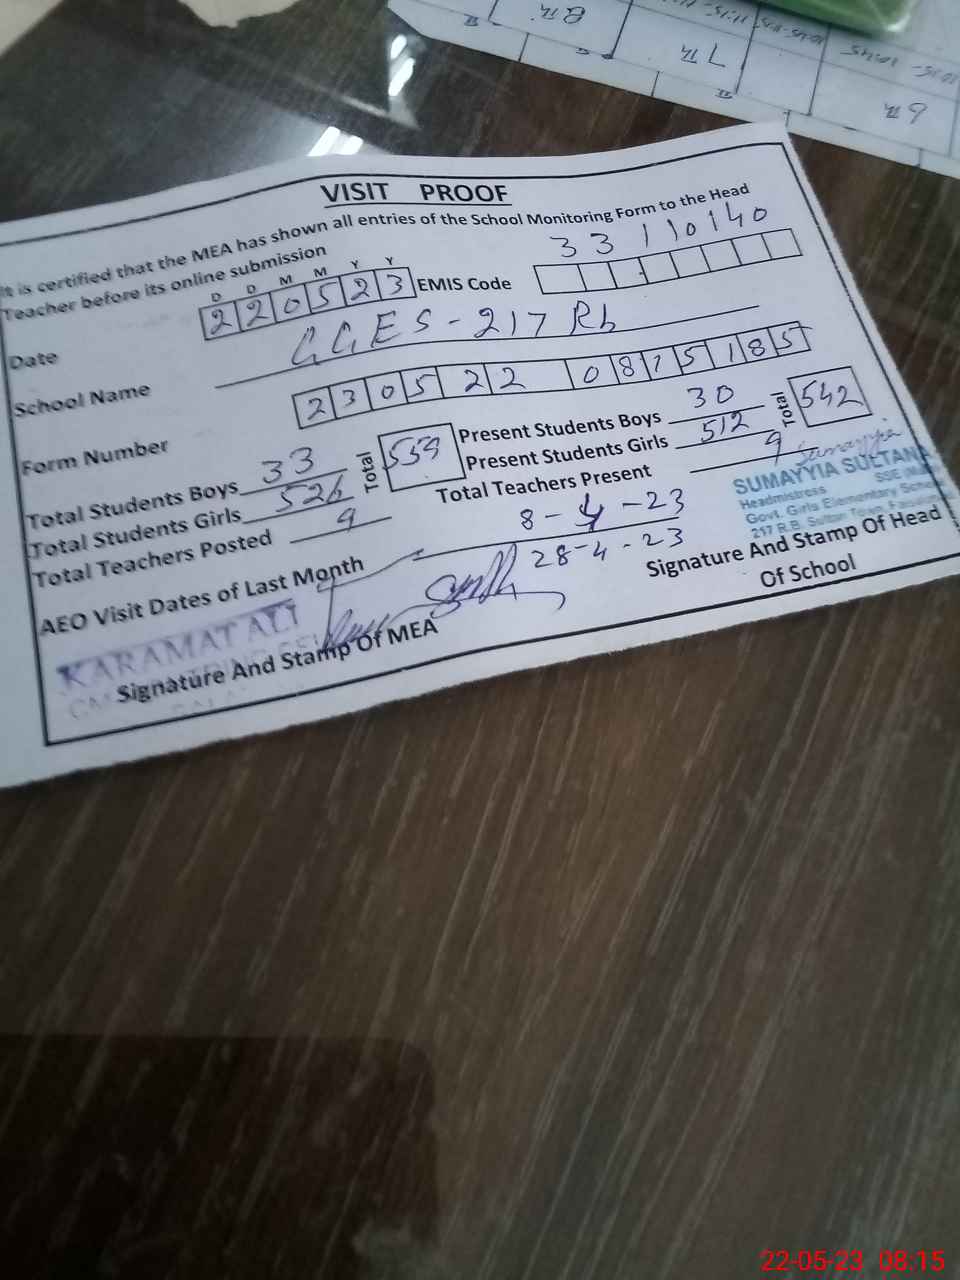 VISIT PROOF
It is certified that the MEA has shown all entries of the School Monitoring Form to the Head
Teacher before its online submission
D D M M Y Y
Date 220523 EMIS Code 33110140
School Name GGES-217 Rb
Form Number 230522 0815185
Total Students Boys 33 Total 559 Present Students Boys 30 Total 542
Total Students Girls 526 Present Students Girls 512
Total Teachers Posted 9 Total Teachers Present 9
AEO Visit Dates of Last Month 8-4-23
28-4-23
Sumayyia
SUMAYYIA SULTANA
Headmistress SSE
Govt. Girls Elementary School
217 R.B. Sultan Town,
Signature And Stamp Of Head
Of School
KARAMAT ALI
Signature And Stamp Of MEA
8th
7th
6th
22-05-23 08:15